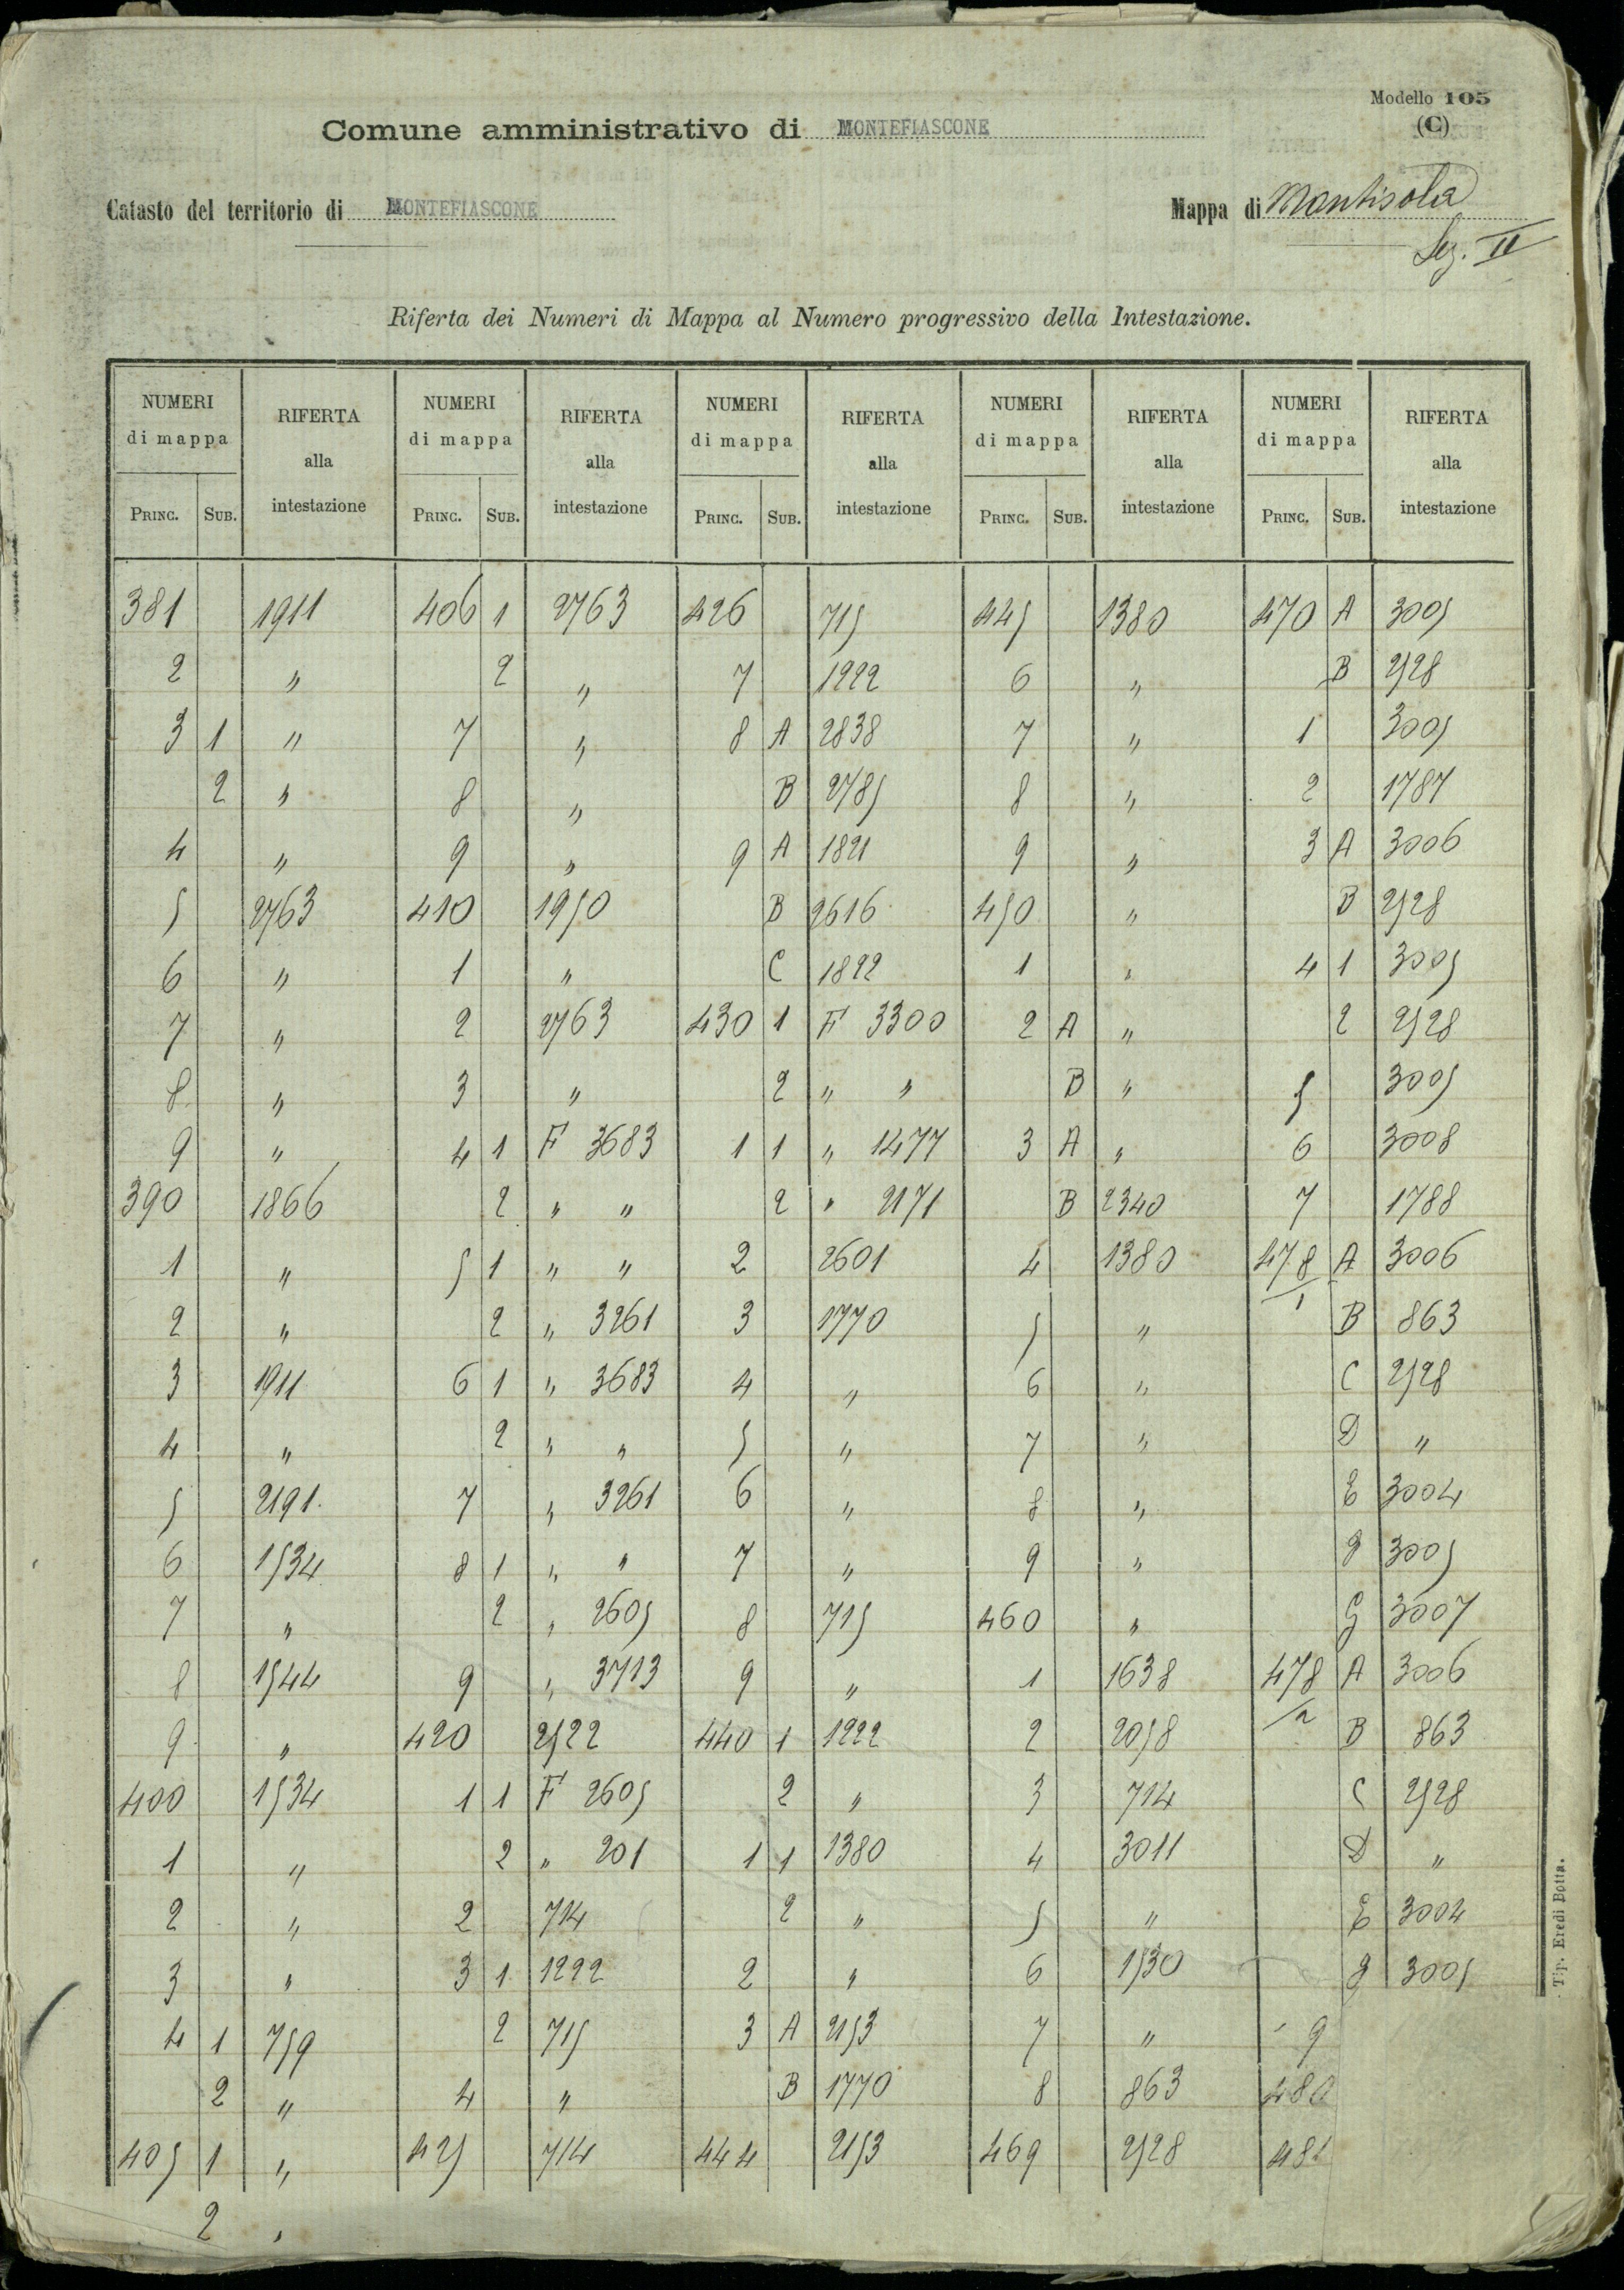 Modello 105
(C)
Comune amministrativo di MONTEFIASCONE
Catasto del territorio di MONTEFIASCONE
Mappa di Montisola
Sez. II
Riferta dei Numeri di Mappa al Numero progressivo della Intestazione.
NUMERI RIFERTA NUMERI RIFERTA NUMERI RIFERTA NUMERI RIFERTA NUMERI RIFERTA
di mappa alla di mappa alla di mappa alla di mappa alla di mappa alla
PRINC. SUB. intestazione PRINC. SUB. intestazione PRINC. SUB. intestazione PRINC. SUB. intestazione PRINC. SUB. intestazione
381 1911 406 1 2763 426 715 445 1380 470 A 3005
2 " 2 " 7 1222 6 " B 2528
3 1 " 7 " 8 A 2838 7 " 1 3005
2 " 8 " B 2785 8 " 2 1787
4 " 9 " 9 A 1821 9 " 3 A 3006
5 2763 410 1950 B 2616 450 " B 2528
6 " 1 " C 1822 1 " 4 1 3005
7 " 2 2763 430 1 F 3300 2 A " 2 2528
8 " 3 " 2 " " B " 5 3005
9 " 4 1 F 3683 1 1 " 1477 3 A " 6 3008
390 1866 2 " " 2 " 2171 B 2340 7 1788
1 " 5 1 " " 2 2601 4 1380 478/1 A 3006
2 " 2 " 3261 3 1770 5 " B 863
3 1911 6 1 " 3683 4 " 6 " C 2528
4 " 2 " " 5 " 7 " D "
5 2191 7 " 3261 6 " 8 " E 3004
6 1534 8 1 " " 7 " 9 " 3005
7 " 2 " 2605 8 715 460 " G 3007
8 1544 9 " 3713 9 " 1 1638 478/2 A 3006
9 " 420 2522 440 1 1222 2 2058 B 863
400 1534 1 1 F 2605 2 " 3 714 C 2528
1 " 2 " 201 1 1 1380 4 3011 D "
2 " 2 714 2 " 5 " E 3004
3 " 3 1 1222 2 " 6 1530 3005
4 1 759 2 715 3 A 2153 7 " 9
2 " 4 " B 1770 8 863 480
405 1 " 425 714 444 2153 469 2528 481
2 "
Tip. Eredi Botta.